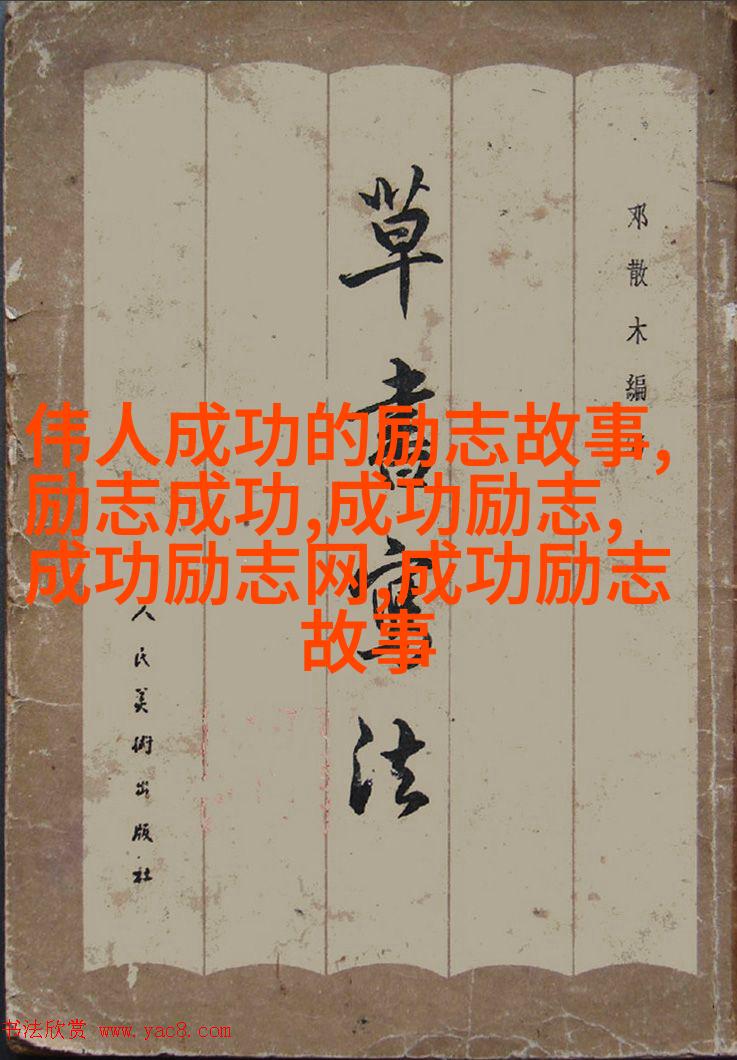 邓散木編
草書寫法
人民美術出版社
伟人成功的励志故事,
励志成功,成功励志,
成功励志网,成功励志
故事
书法欣赏 www.yac8.com